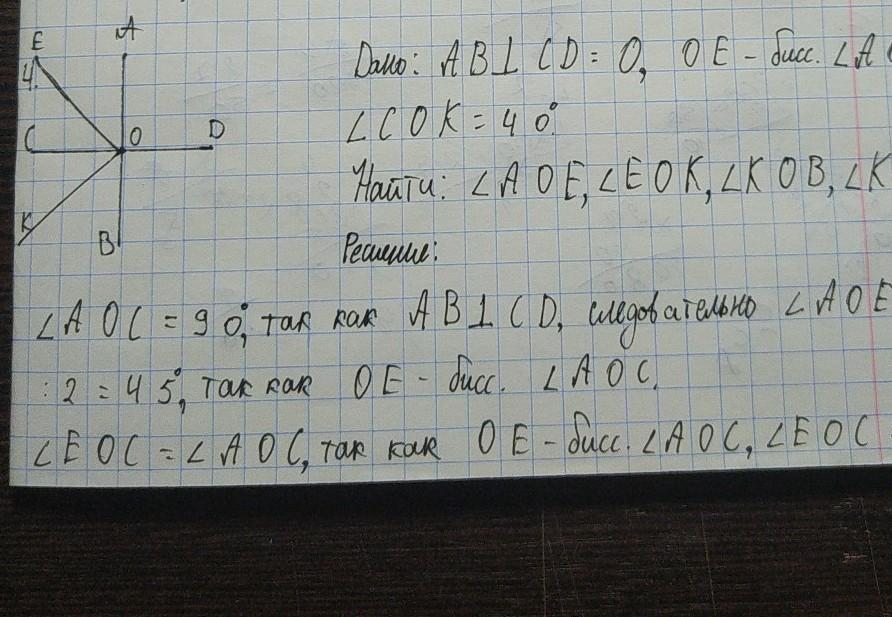 E
A
4.
C
O
D
K
B
Дано: AB⊥CD = O, OE - бисс. ∠A
∠COK = 40°.
Найти: ∠AOE, ∠EOK, ∠KOB, ∠K
Решение:
∠AOC = 90°, так как AB⊥CD, следовательно ∠AOE
:2 = 45°, так как OE - бисс. ∠AOC.
∠EOC = ∠AOC, так как OE - бисс. ∠AOC, ∠EOC